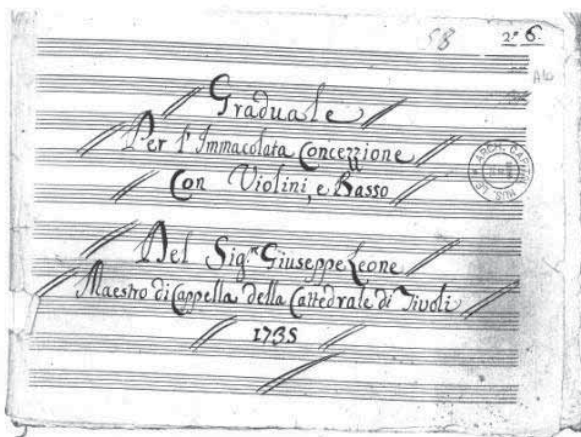 58 2º 6.
Graduale
Per l'Immacolata Concezzione
Con Violini, e Basso
Del Sig.r Giuseppe Leone
Maestro di Cappella della Cattedrale di Tivoli
1735